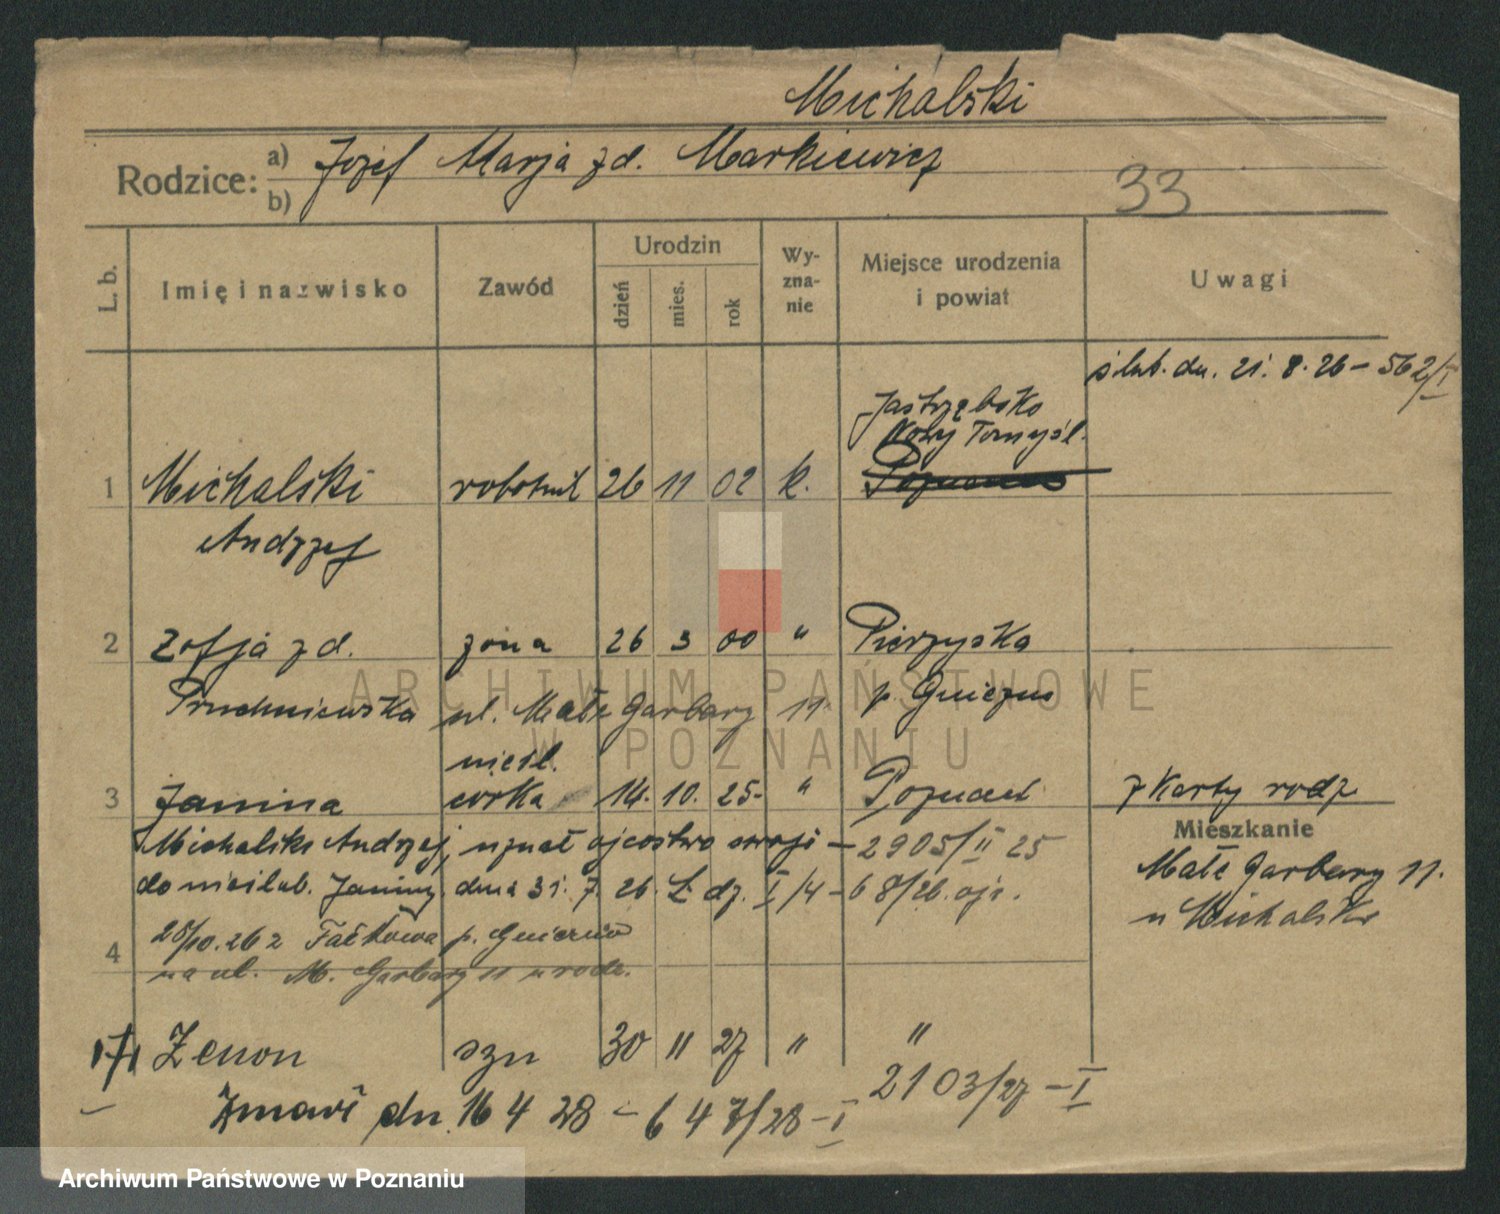 Michalski
Rodzice: a) Józef Marja zd. Markiewicz
b)
33
L. b. Imię i nazwisko Zawód Urodzin dzień mies. rok Wyznanie Miejsce urodzenia i powiat Uwagi
ślub. dn. 21. 8. 26 – 562/I
Jastrzębsko
Nowy Tomyśl.
1 Michalski robotnik 26 11 02 k. Poznań
Andrzej
2 Zofja zd. żona 26 3 00 " Pierzyska
Pruchniewska ul. Małe Garbary 11. p. Gniezno
nieśl.
3 Janina córka 14. 10. 25 – " Poznań z karty rodz
Michalski Andrzej, uznał ojcostwo swoje – 2905/II 25
Mieszkanie
do nieślub. Janiny. dnia 31. 7. 26. L. dz. I/4 – 68/26. ojc.
Małe Garbary 11.
u Michalski
4 28/10. 26 z Fałkowa p. Gniezno
na ul. M. Garbary 11 u rodz.
Zenon syn 30 11 27 " "
2103/27 – I
Zmarł dn. 16 4 28 – 647/28 – I
ARCHIWUM PAŃSTWOWE
W POZNANIU
Archiwum Państwowe w Poznaniu